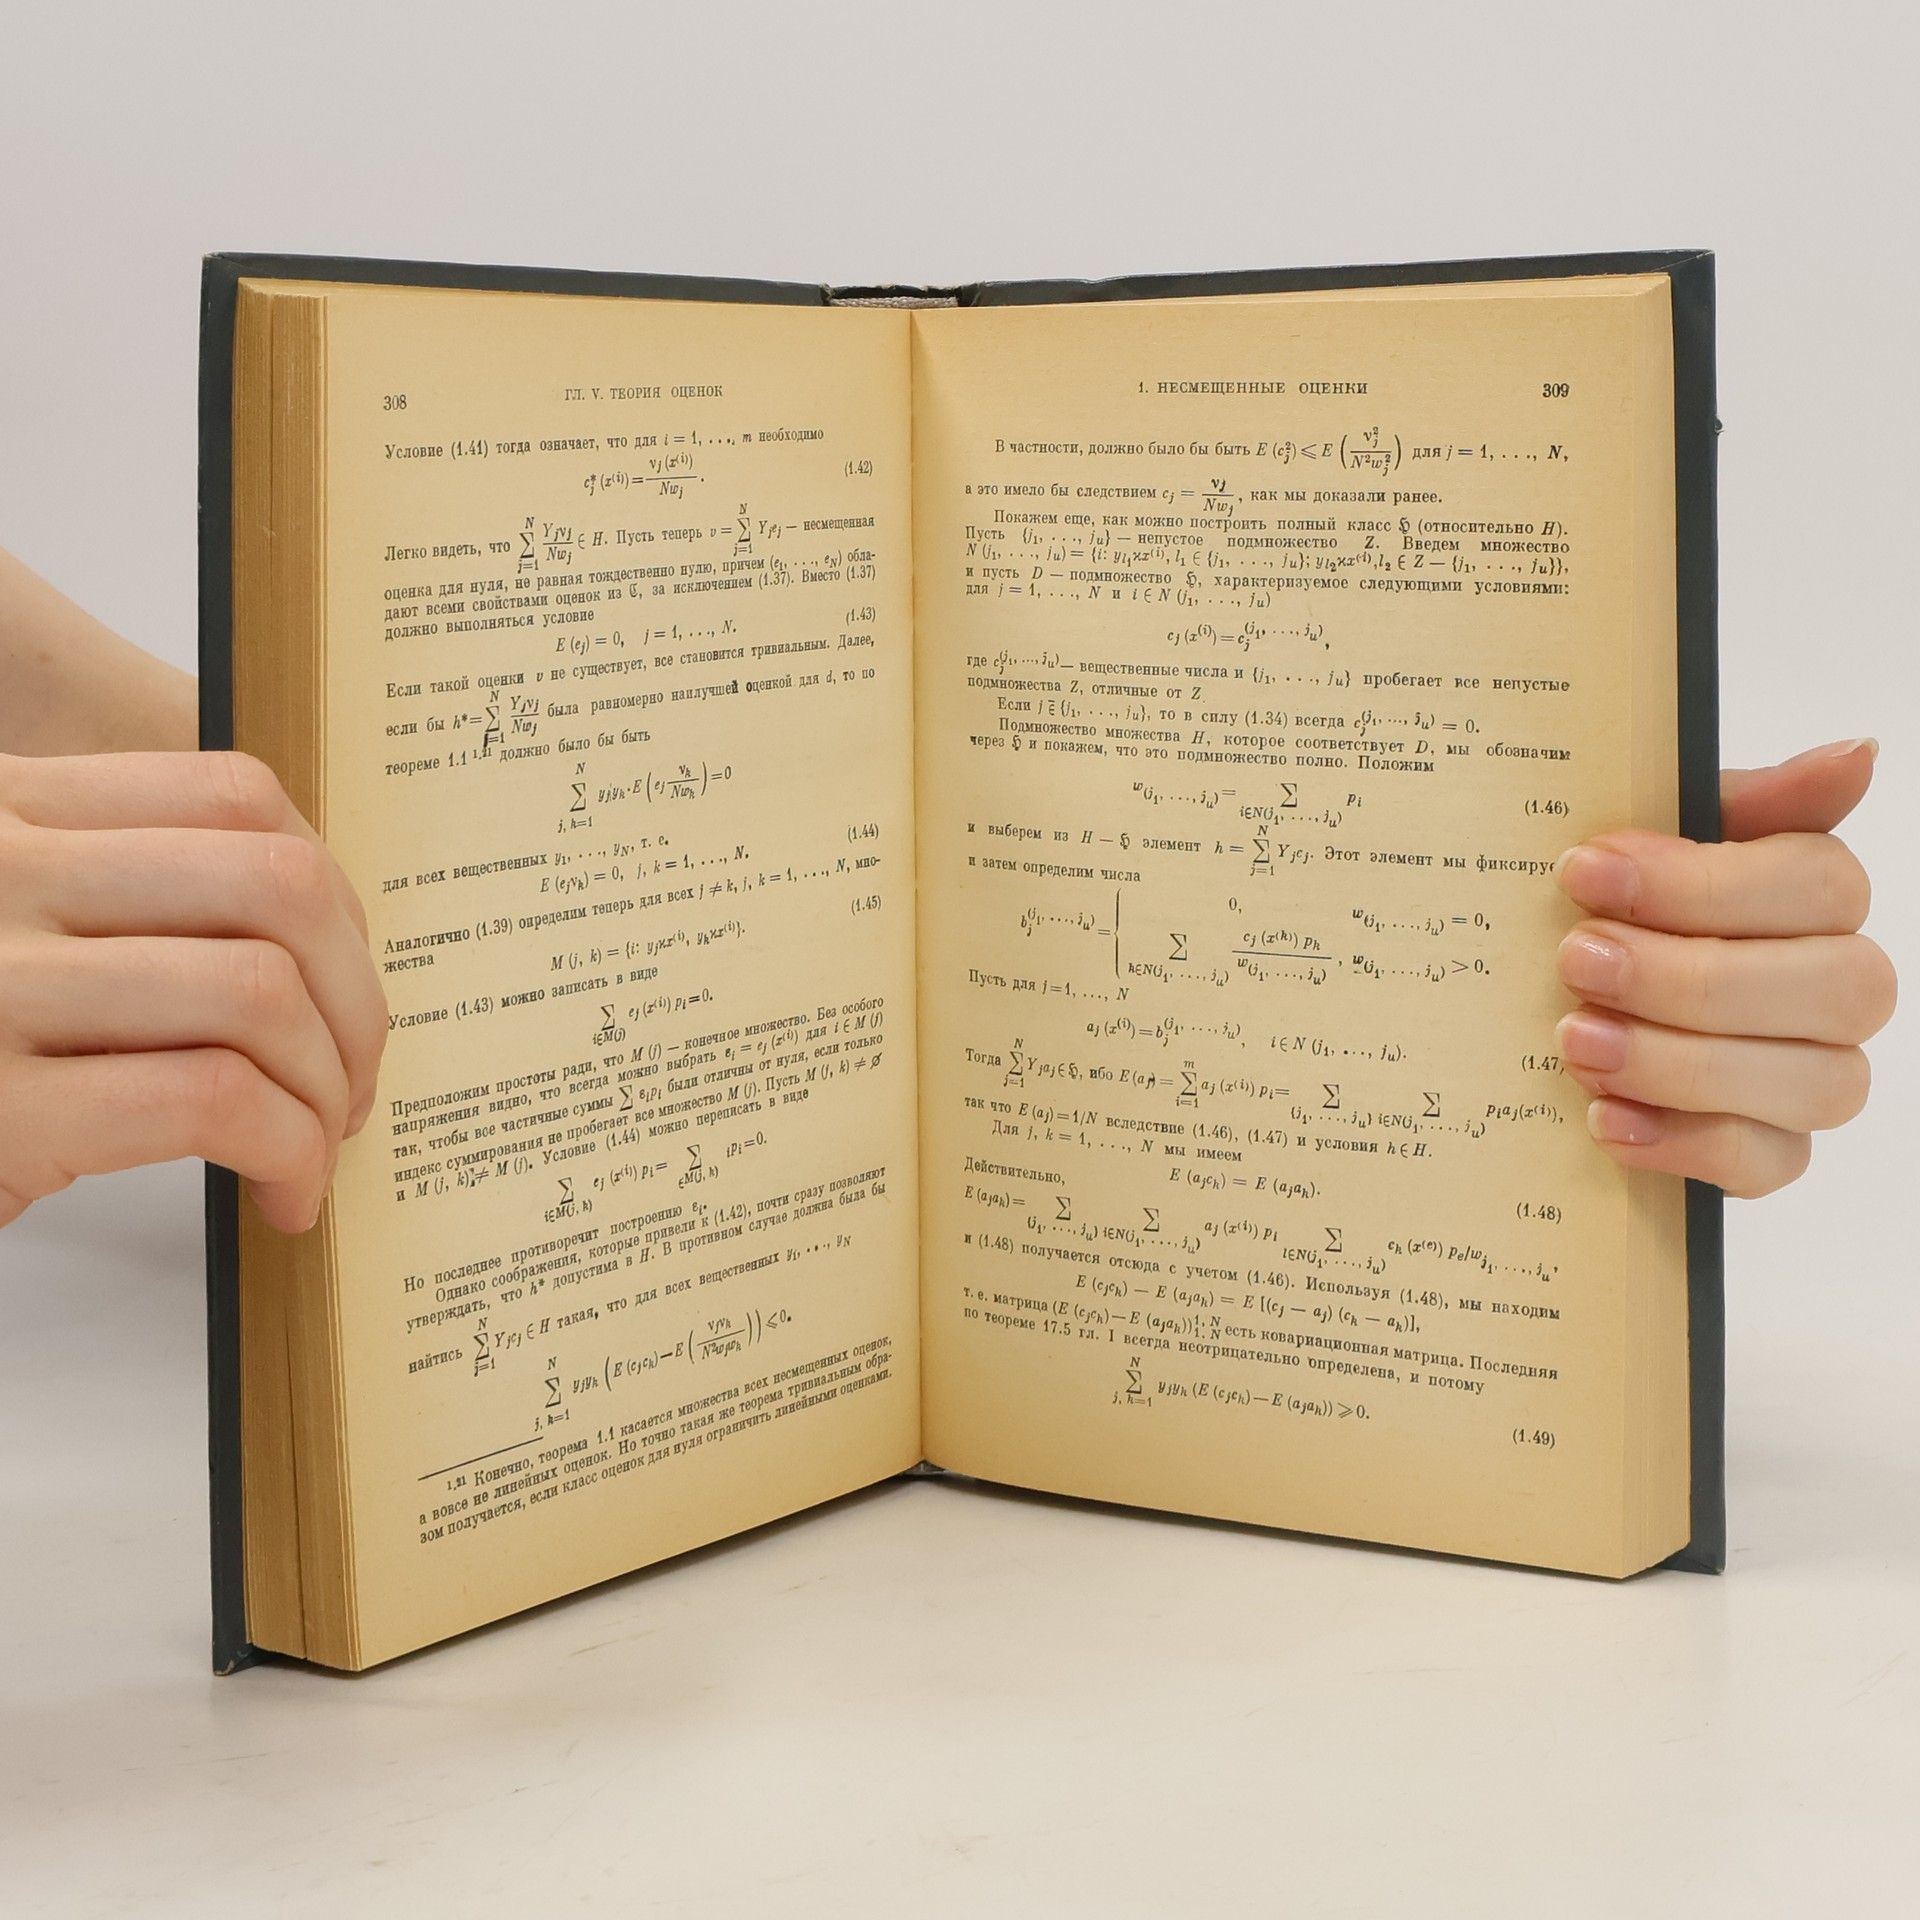 308 ГЛ. V. ТЕОРИЯ ОЦЕНОК
Условие (1.41) тогда означает, что для i = 1, ..., m необходимо
c*_j (x^(i)) = ν_j (x^(i)) / Nw_j . (1.42)
Легко видеть, что ∑_{j=1}^{N} Y_jν_j / Nw_j ∈ H. Пусть теперь v = ∑_{j=1}^{N} Y_je_j — несмещенная
оценка для нуля, не равная тождественно нулю, причем (e_1, ..., e_N) обла-
дают всеми свойствами оценок из ℭ, за исключением (1.37). Вместо (1.37)
должно выполняться условие
E (e_j) = 0, j = 1, ..., N. (1.43)
Если такой оценки v не существует, все становится тривиальным. Далее,
если бы h* = ∑_{j=1}^{N} Y_jν_j / Nw_j была равномерно наилучшей оценкой для d, то по
теореме 1.1 ^1.21 должно было бы быть
∑_{j, k=1}^{N} y_jy_k · E (e_j ν_k / Nw_k) = 0
для всех вещественных y_1, ..., y_N, т. е.
E (e_jν_k) = 0, j, k = 1, ..., N. (1.44)
Аналогично (1.39) определим теперь для всех j ≠ k, j, k = 1, ..., N, мно-
жества
M (j, k) = {i: y_jϰx^(i), y_kϰx^(i)}. (1.45)
Условие (1.43) можно записать в виде
∑_{i∈M(j)} e_j (x^(i)) p_i = 0.
Предположим простоты ради, что M (j) — конечное множество. Без особого
напряжения видно, что всегда можно выбрать ε_i = e_j (x^(i)) для i ∈ M (j)
так, чтобы все частичные суммы ∑ ε_ip_i были отличны от нуля, если только
индекс суммирования не пробегает все множество M (j). Пусть M (j, k) ≠ ∅
и M (j, k) ≠ M (j). Условие (1.44) можно переписать в виде
∑_{i∈M(j, k)} e_j (x^(i)) p_i = ∑_{∈M(j, k)} ip_i = 0.
Но последнее противоречит построению ε_i.
Однако соображения, которые привели к (1.42), почти сразу позволяют
утверждать, что h* допустима в H. В противном случае должна была бы
найтись ∑_{j=1}^{N} Y_jc_j ∈ H такая, что для всех вещественных y_1, ..., y_N
∑_{j, k=1}^{N} y_jy_k (E (c_jc_k) — E (ν_jν_k / N²w_jw_k)) ⩽ 0.
^1.21 Конечно, теорема 1.1 касается множества всех несмещенных оценок,
а вовсе не линейных оценок. Но точно такая же теорема тривиальным обра-
зом получается, если класс оценок для нуля ограничить линейными оценками.
1. НЕСМЕЩЕННЫЕ ОЦЕНКИ 309
В частности, должно было бы быть E (c_j^2) ⩽ E (ν_j^2 / N²w_j^2) для j = 1, ..., N,
а это имело бы следствием c_j = ν_j / Nw_j, как мы доказали ранее.
Покажем еще, как можно построить полный класс ℌ (относительно H).
Пусть {j_1, ..., j_u} — непустое подмножество Z. Введем множество
N (j_1, ..., j_u) = {i: y_{l_1}ϰx^(i), l_1 ∈ {j_1, ..., j_u}; y_{l_2}ϰx^(i), l_2 ∈ Z — {j_1, ..., j_u}},
и пусть D — подмножество ℌ, характеризуемое следующими условиями:
для j = 1, ..., N и i ∈ N (j_1, ..., j_u)
c_j (x^(i)) = c_j^(j_1, ..., j_u),
где c_j^(j_1, ..., j_u) — вещественные числа и {j_1, ..., j_u} пробегает все непустые
подмножества Z, отличные от Z.
Если j ∈̄ {j_1, ..., j_u}, то в силу (1.34) всегда c_j^(j_1, ..., j_u) = 0.
Подмножество множества H, которое соответствует D, мы обозначим
через ℌ и покажем, что это подмножество полно. Положим
w_(j_1, ..., j_u) = ∑_{i∈N(j_1, ..., j_u)} p_i (1.46)
и выберем из H — ℌ элемент h = ∑_{j=1}^{N} Y_jc_j. Этот элемент мы фиксируе
и затем определим числа
b_j^(j_1, ..., j_u) = { 0, w_(j_1, ..., j_u) = 0,
∑_{k∈N(j_1, ..., j_u)} c_j (x^(k)) p_k / w_(j_1, ..., j_u), w_(j_1, ..., j_u) > 0.
Пусть для j = 1, ..., N
a_j (x^(i)) = b_j^(j_1, ..., j_u), i ∈ N (j_1, ..., j_u). (1.47)
Тогда ∑_{j=1}^{N} Y_ja_j ∈ ℌ, ибо E (a_j) = ∑_{i=1}^{m} a_j (x^(i)) p_i = ∑_{{j_1, ..., j_u}} ∑_{i∈N(j_1, ..., j_u)} p_ia_j(x^(i)),
так что E (a_j) = 1/N вследствие (1.46), (1.47) и условия h ∈ H.
Для j, k = 1, ..., N мы имеем
E (a_jc_k) = E (a_ja_k). (1.48)
Действительно,
E (a_ja_k) = ∑_{(j_1, ..., j_u)} ∑_{i∈N(j_1, ..., j_u)} a_j (x^(i)) p_i ∑_{l∈N(j_1, ..., j_u)} c_k (x^(e)) p_e/w_{j_1, ..., j_u},
и (1.48) получается отсюда с учетом (1.46). Используя (1.48), мы находим
E (c_jc_k) — E (a_ja_k) = E [(c_j — a_j) (c_k — a_k)],
т. е. матрица (E (c_jc_k) — E (a_ja_k))_{1, N}^{1, N} есть ковариационная матрица. Последняя
по теореме 17.5 гл. I всегда неотрицательно определена, и потому
∑_{j, k=1}^{N} y_jy_k (E (c_jc_k) — E (a_ja_k)) ⩾ 0. (1.49)